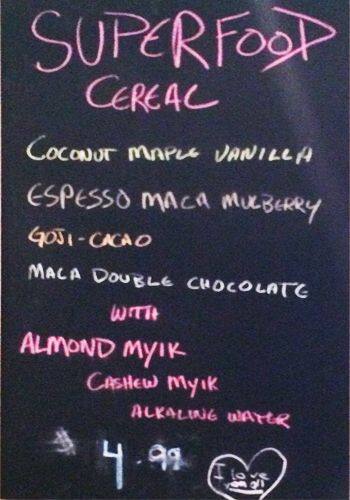 SUPERFOOD
CEREAL
COCONUT MAPLE VANILLA
ESPESSO MACA MULBERRY
GOJI-CACAO
MACA DOUBLE CHOCOLATE
WITH
ALMOND MYIK
CASHEW MYIK
ALKALINE WATER
$ 4.99
I love
you all